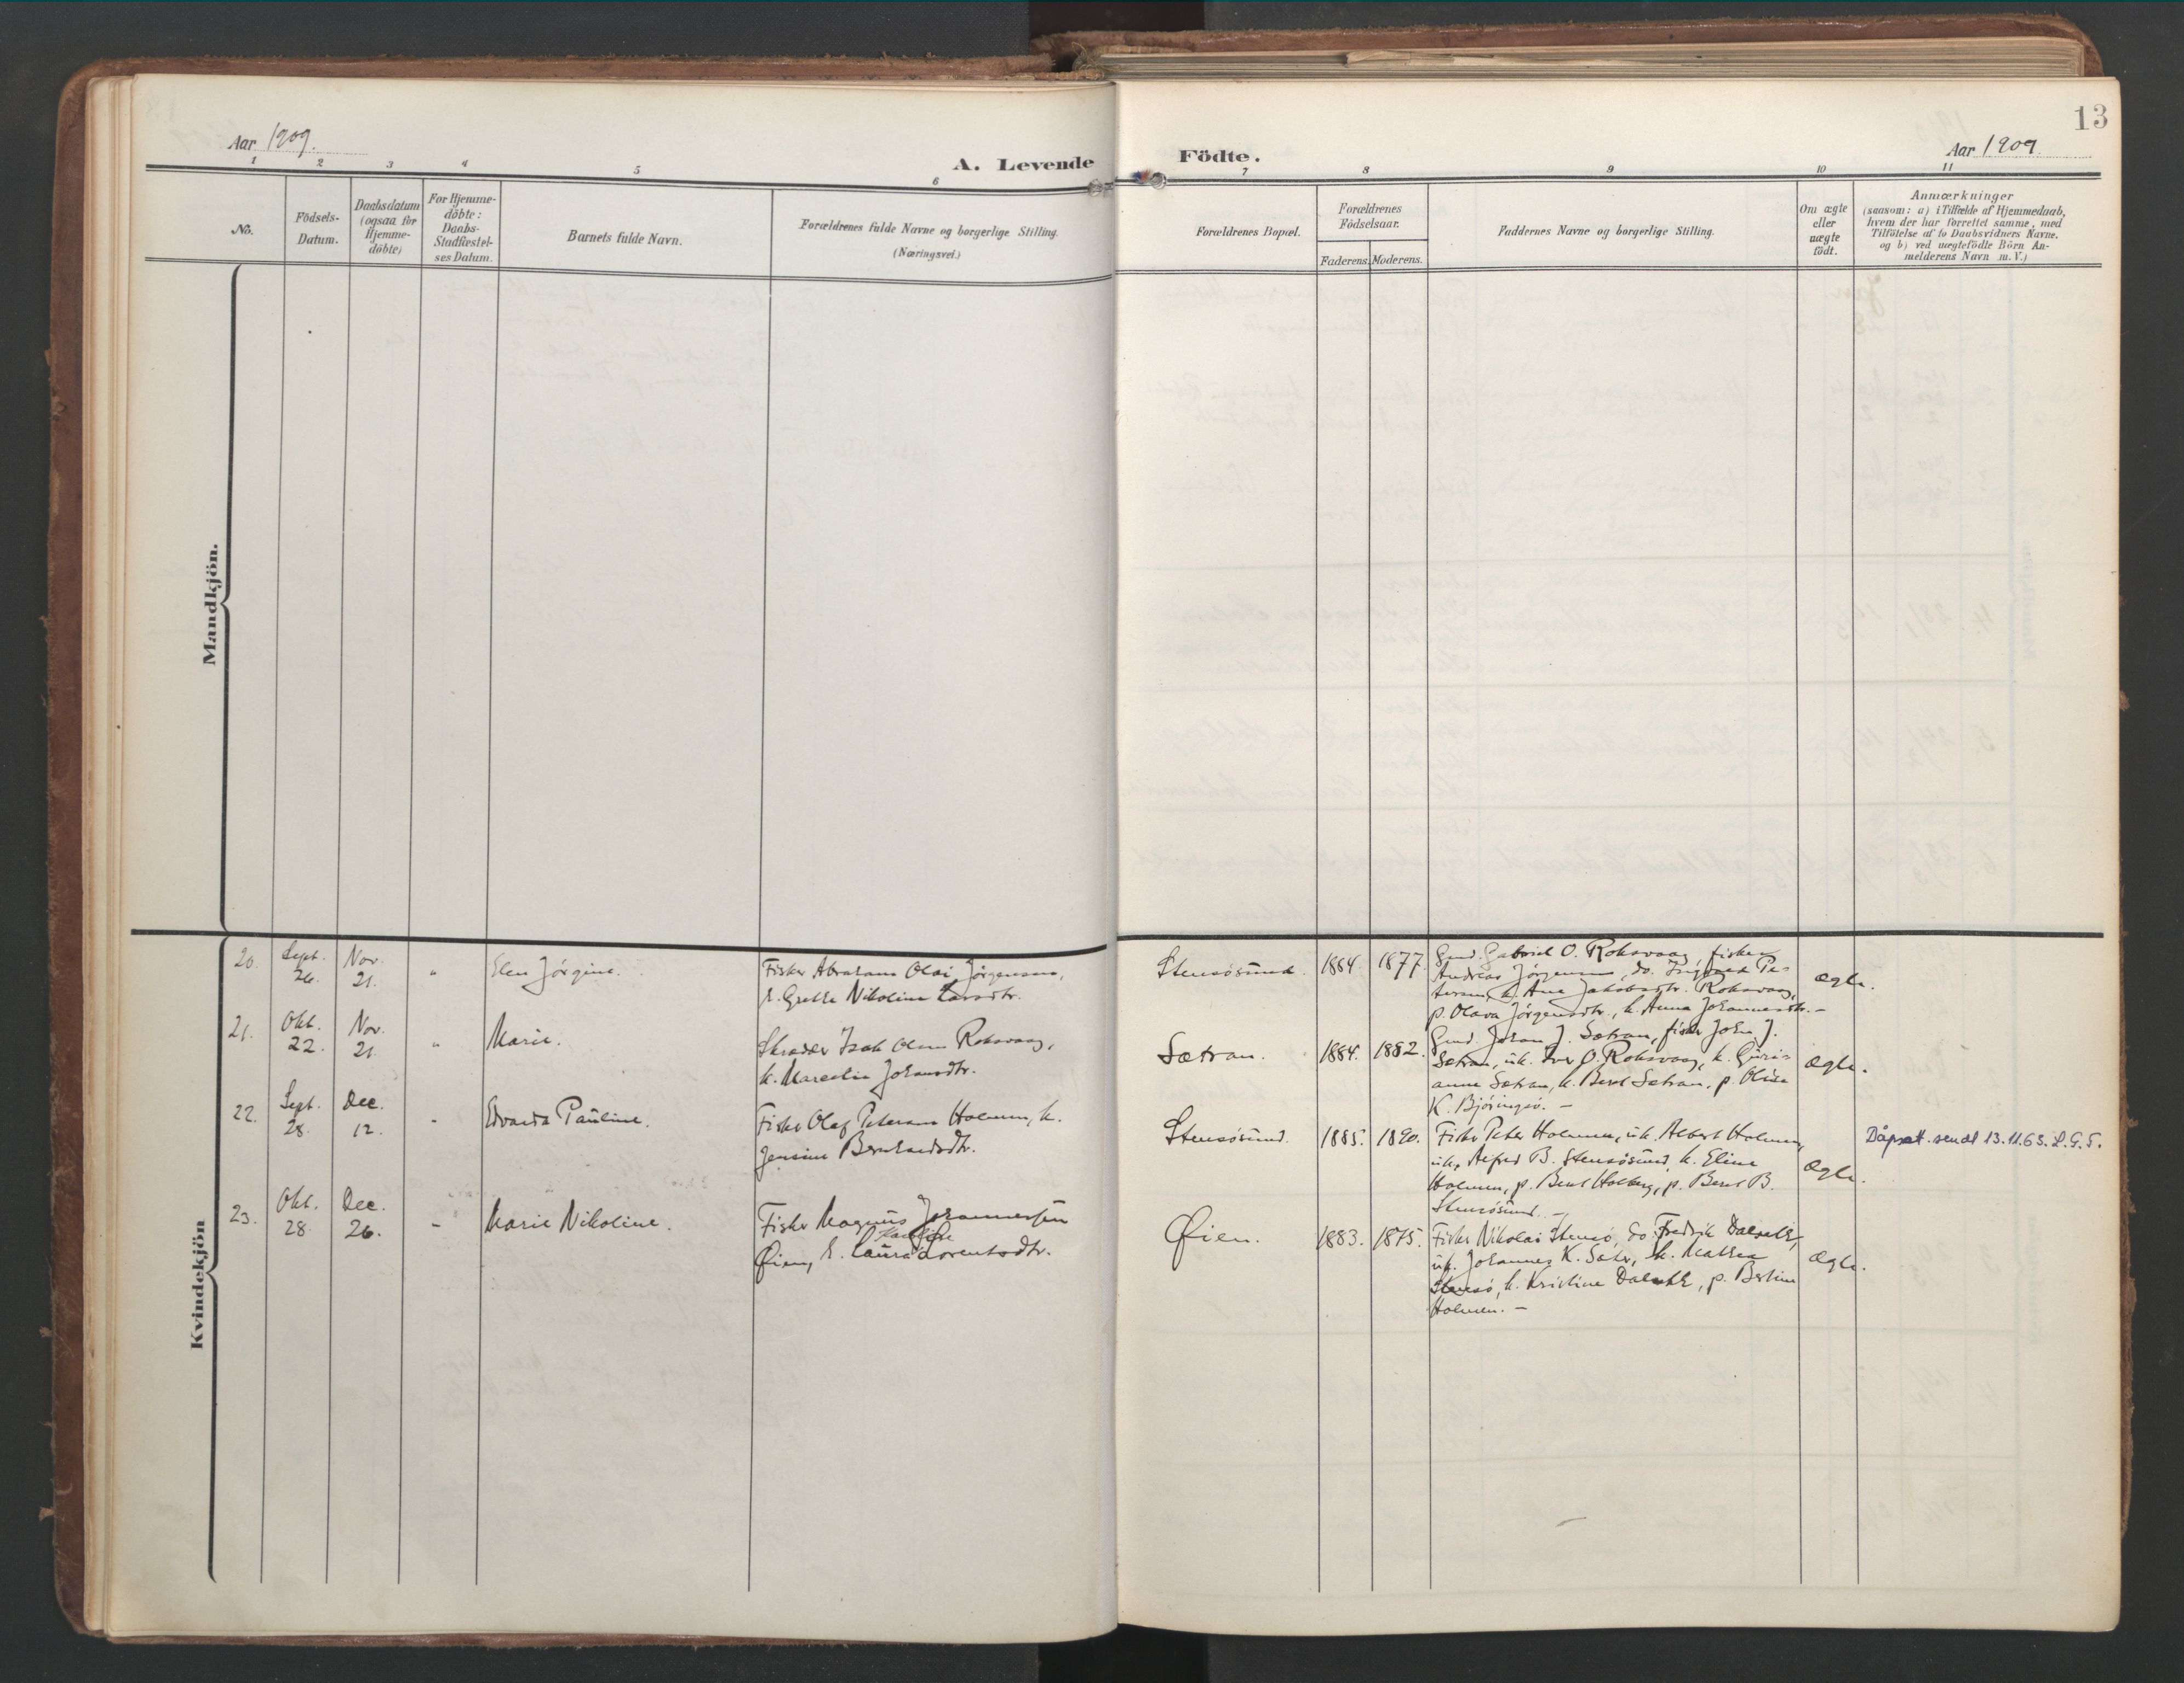 13
Aar 1909.
A. Levende Födte.
Aar 1909
1 2 3 4 5 6 7 8 9 10 11
No.
Födsels-
Datum.
Daabsdatum
(ogsaa for
Hjemme-
döbte)
For Hjemme-
döbte:
Daabs-
Stadfæstel-
ses Datum.
Barnets fulde Navn.
Forældrenes fulde Navne og borgerlige Stilling.
(Næringsvei.)
Forældrenes Bopæl.
Forældrenes
Födselsaar.
Faderens. Moderens.
Faddernes Navne og borgerlige Stilling.
Om ægte
eller
uægte
födt.
Anmærkninger
(saasom: a) i Tilfælde af Hjemmedaab,
hvem der har forrettet samme, med
Tilföielse af to Daabsvidners Navne.
og b) ved uægtefödte Börn An-
melderens Navn m.V.)
Mandkjön.
Kvindekjön
20.
Sept.
26.
Nov.
21.
"
Elen Jörgine.
Fisker Abraham Olai Jörgensen,
h. Grethe Nikoline Larsdtr.
Stensösund.
1884. 1877.
Gmd. Gabriel O. Roksvaag, fisker
Andreas Jörgensen, do. Ingvard Pe-
tersen, k. Ane Jakobsdtr. Roksvaag,
p. Olava Jörgensdtr., k. Anna Johannesdtr. -
ægte.
21.
Okt.
22.
Nov.
21
"
Marie.
Skrædder Isak Olsen Roksvaag,
h. Marselie Johansdtr.
Sætran.
1884. 1882.
Gmd. Johan J. Sætran, fisker John J.
Sætran, uk. Iver O. Roksvaag, k. Guri-
anne Sætran, k. Berte Sætran, p. Olise
K. Björingsö. -
ægte.
22.
Sept.
28.
Dec.
12.
"
Edvarda Pauline.
Fisker Olaf Petersen Holmen, h.
Jensine Bernhardsdtr.
Stensösund.
1885. 1890.
Fisker Peter Holmen, uk. Albert Holmen,
uk. Alfred B. Stensösund, k. Eline
Holmen, p. Berte Holberg, p. Berte B.
Stensösund. -
ægte.
Dåpsatt. sendt 13.11.63. L.G.T.
23.
Okt.
28.
Dec.
26.
"
Marie Nikoline.
Fisker Magnus Johannessen
Øien, h. Laura Lorentsdtr.
Øien.
1883. 1875.
Fisker Nikolai Stensö, do. Fredrik Dalsæth,
uk. Johannes K. Sæter, k. Mathea
Stensö, k. Kristine Dalsæth, p. Bertine
Holmen. -
ægte.